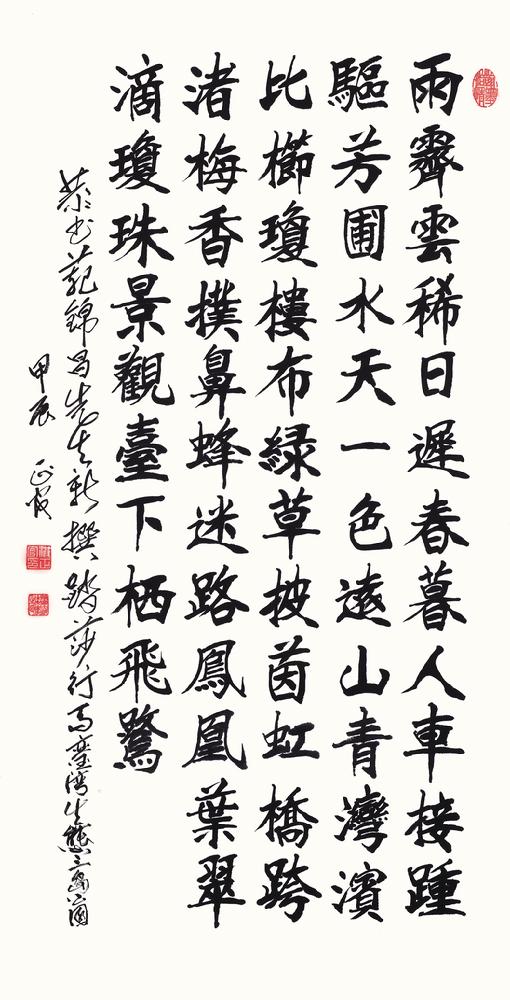 雨霽雲稀日遲春暮人車接踵
驅芳圃水天一色遠山青灣濱
比櫛瓊樓布綠草披茵虹橋跨
渚梅香撲鼻蜂迷路鳳凰葉翠
滴瓊珠景觀臺下栖飛鷺
恭书範錦昌先生新撰踏莎行馬鑾灣生態三島公園
甲辰 正